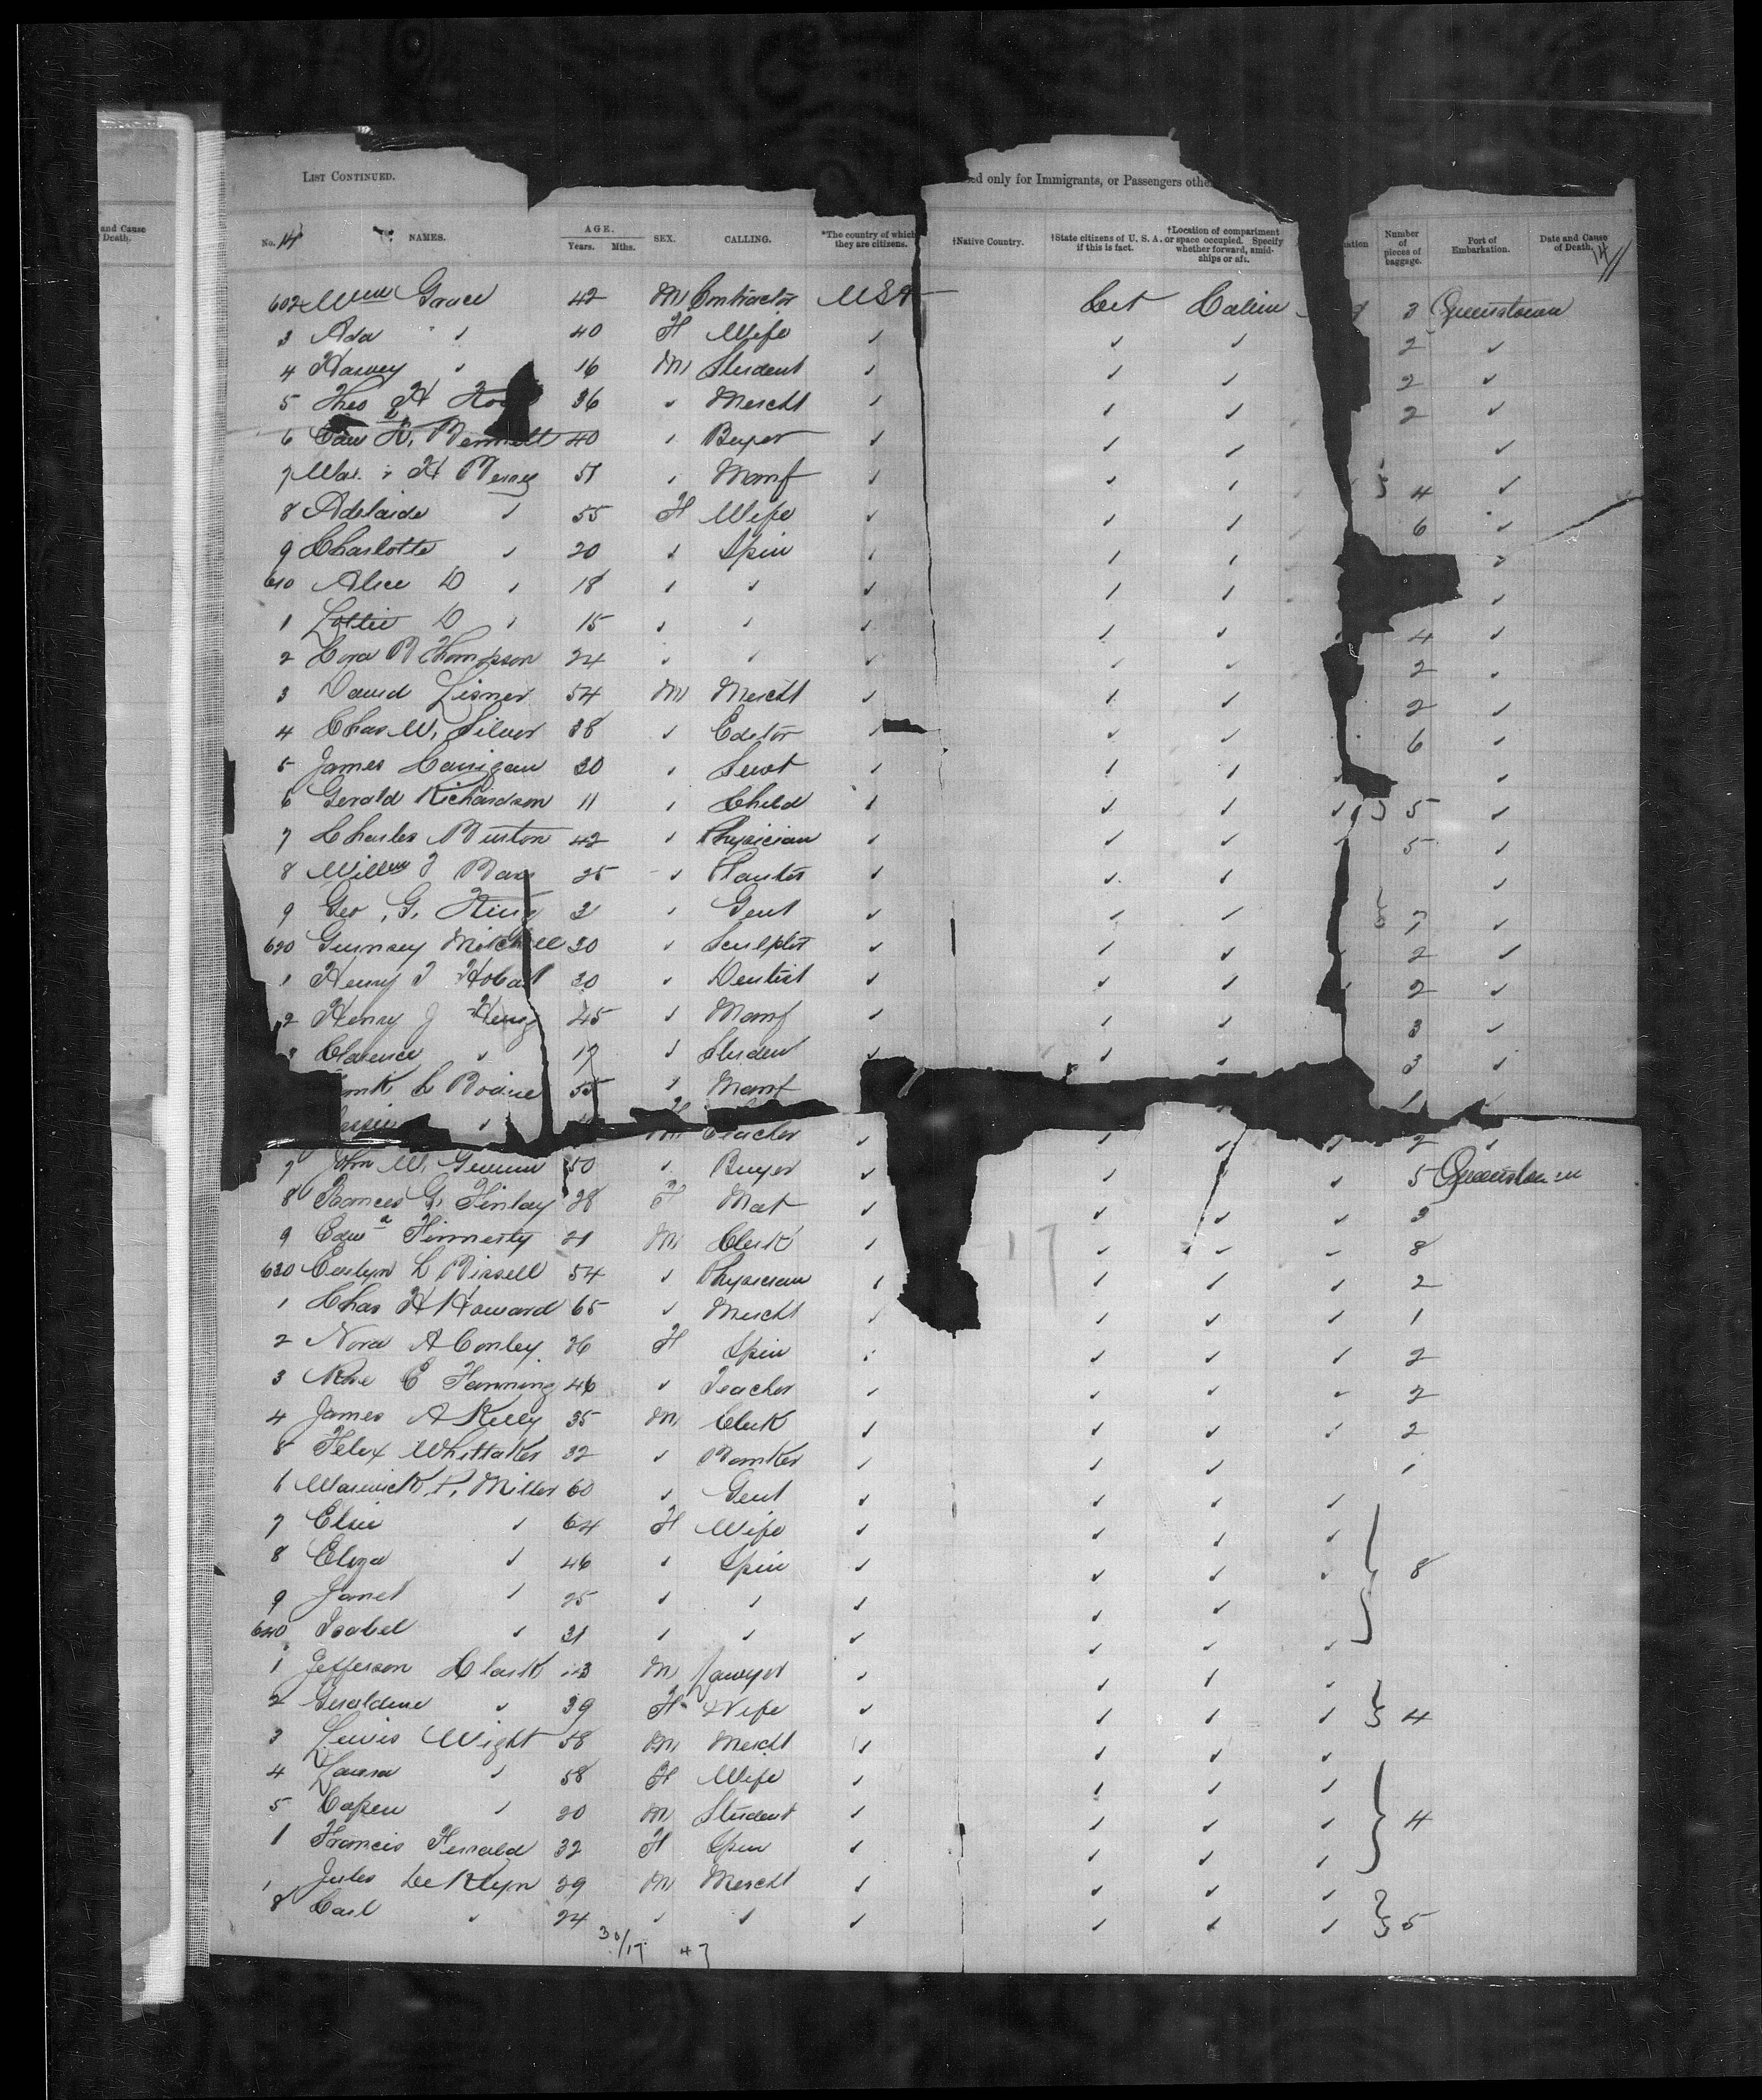 and Cause
Death.
LIST CONTINUED.
ed only for Immigrants, or Passengers othe
No. 14 NAMES. AGE. Years. Mths. SEX. CALLING. *The country of which they are citizens. †Native Country. †State citizens of U. S. A. if this is fact. †Location of compartment or space occupied. Specify whether forward, amidships or aft. Number of pieces of baggage. Port of Embarkation. Date and Cause of Death. 14
602 Wm Grace 42 M Contractor USA Cit Cabin 3 Queenstown
3 Ada ✓ 40 F Wife ✓ ✓ ✓ 2 ✓
4 Harvey ✓ 16 M Student ✓ ✓ ✓ 2 ✓
5 Theo H 36 ✓ Mercht ✓ ✓ ✓ 2 ✓
6 Edw H. Bennett 40 ✓ Buyer ✓ ✓ ✓ ✓
7 H 51 ✓ Manf ✓ ✓ ✓ 4 ✓
8 Adelaide ✓ 55 F Wife ✓ ✓ ✓ 6 ✓
9 Charlotte ✓ 20 ✓ Spin ✓ ✓ ✓ ✓
610 Alice D ✓ 18 ✓ ✓ ✓ ✓ ✓ ✓
1 Lottie D ✓ 15 ✓ ✓ ✓ ✓ ✓ 4 ✓
2 Cora B Thompson 24 ✓ ✓ ✓ ✓ ✓ 2 ✓
3 David Lisner 54 M Mercht ✓ ✓ ✓ 2 ✓
4 Chas W. Silver 38 ✓ Editor ✓ ✓ ✓ 6 ✓
5 James Carrigan 30 ✓ Servt ✓ ✓ ✓ ✓
6 Gerald Richardson 11 ✓ Child ✓ ✓ ✓ ✓ 5 ✓
7 Charles Burton 42 ✓ Physician ✓ ✓ ✓ ✓ 5 ✓
8 Willm 25 ✓ Planter ✓ ✓ ✓ ✓
9 Geo. G. King ✓ Gent ✓ ✓ ✓ 7 ✓
620 Guernsey Mitchell 30 ✓ Sculptor ✓ ✓ ✓ 2 ✓
1 Henry T Hobart 30 ✓ Dentist ✓ ✓ ✓ 2 ✓
2 Henry J Heinz 45 ✓ Manf ✓ ✓ ✓ 3 ✓
3 Clarence ✓ 17 ✓ Student ✓ ✓ ✓ 3 ✓
L 55 ✓ Manf 1 ✓
✓ F
M Teacher ✓ ✓ ✓ ✓ 2 ✓
7 John W. 50 ✓ Buyer ✓ ✓ ✓ ✓ 5 Queenstown
8 Frances G. Finlay 28 F Mat ✓ ✓ ✓ ✓ 3
9 Edwd Finnerty 21 M Clerk ✓ ✓ ✓ ✓ 8
630 Evelyn L Bissell 54 ✓ Physician ✓ ✓ ✓ ✓ 2
1 Chas H Howard 65 ✓ Mercht ✓ ✓ ✓ ✓ 1
2 Nora A Conley 26 F Spin ✓ ✓ ✓ ✓ 2
3 Rose E Fanning 46 ✓ Teacher ✓ ✓ ✓ ✓ 2
4 James A Kelly 35 M Clerk ✓ ✓ ✓ ✓ 2
5 Felix Whittaker 32 ✓ Banker ✓ ✓ ✓ 1
6 Warwick P. Miller 60 ✓ Gent ✓ ✓ ✓ ✓
7 Elsie ✓ 64 F Wife ✓ ✓ ✓ ✓
8 Eliza ✓ 46 ✓ Spin ✓ ✓ ✓ ✓ 8
9 Janet ✓ 25 ✓ ✓ ✓ ✓ ✓
640 Isabel ✓ 21 ✓ ✓ ✓ ✓ ✓ ✓
1 Jefferson Clark M Lawyer ✓ ✓ ✓ ✓
2 Geraldine ✓ 39 F Wife ✓ ✓ ✓ ✓ 4
3 Lewis Wight 58 M Mercht ✓ ✓ ✓ ✓
4 Laura ✓ 58 F Wife ✓ ✓ ✓ ✓
5 Capen ✓ 20 M Student ✓ ✓ ✓ ✓ 4
Francis Ferrald 32 F Spin ✓ ✓ ✓ ✓
Jules De Klyn 29 M Mercht ✓ ✓ ✓ ✓
8 Carl ✓ 24 ✓ ✓ ✓ ✓ ✓ ✓ 5
30/17 47